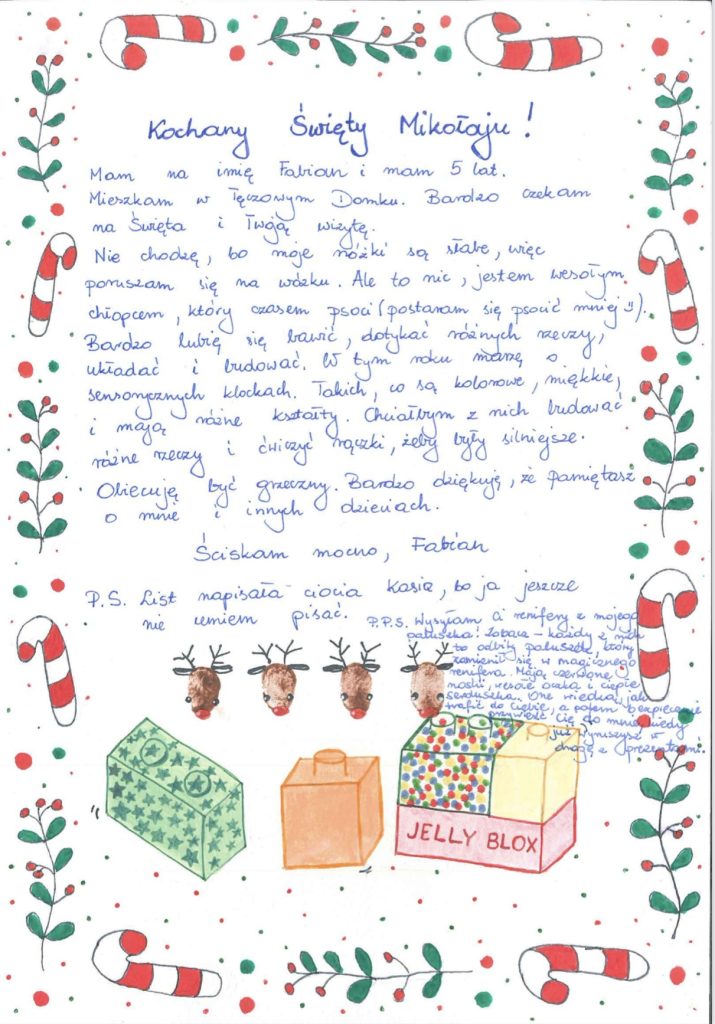 Kochany Święty Mikołaju!
Mam na imię Fabian i mam 5 lat.
Mieszkam w Tęczowym Domku. Bardzo czekam
na Święta i Twoją wizytę.
Nie chodzę, bo moje nóżki są słabe, więc
poruszam się na wózku. Ale to nic, jestem wesołym
chłopcem, który czasem psoci (postaram się psocić mniej :)).
Bardzo lubię się bawić, dotykać różnych rzeczy,
układać i budować. W tym roku marzę o
sensorycznych klockach. Takich, co są kolorowe, miękkie,
i mają różne kształty. Chciałbym z nich budować
różne rzeczy i ćwiczyć rączki, żeby były silniejsze.
Obiecuję być grzeczny. Bardzo dziękuję, że pamiętasz
o mnie i innych dzieciach.
Ściskam mocno, Fabian
P.S. List napisała ciocia Kasia, bo ja jeszcze
nie umiem pisać.
P.P.S. Wysyłam Ci renifery z mojego
paluszka! Zobacz - każdy z nich
to odbity paluszek, który
zamienił się w magicznego
renifera. Mają czerwone
noski, wesołe oczka i ciepłe
serduszka. One wiedzą, jak
trafić do Ciebie, a potem bezpiecznie
przywieźć Cię do mnie, kiedy
już wyruszysz w
drogę z prezentami.
JELLY BLOX